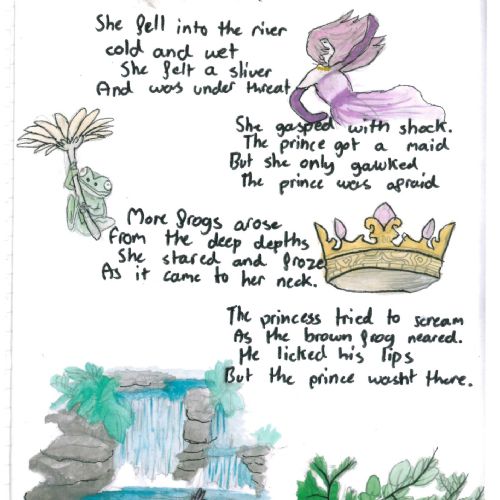 She fell into the river
cold and wet
She felt a sliver
And was under threat
She gasped with shock.
The prince got a maid
But she only gawked
The prince was afraid
More frogs arose
from the deep depths
She stared and froze
As it came to her neck.
The princess tried to scream
As the brown frog neared.
He licked his lips
But the prince washt there.